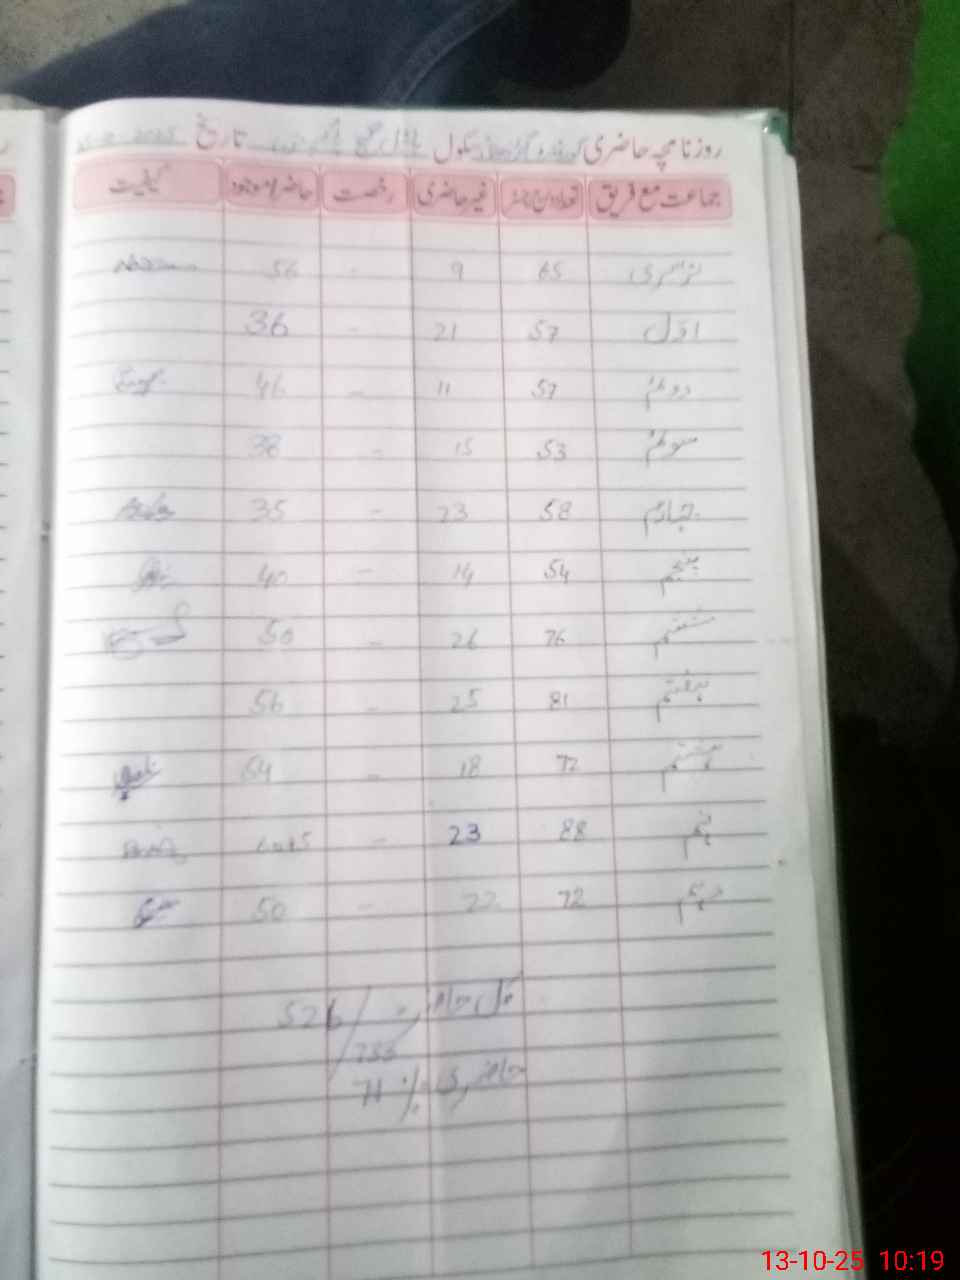 روزنامچہ حاضری سکول تاریخ
جماعت مع فریق تعداد مندرجہ غیر حاضری رخصت حاضر/موجود کیفیت
نرسری 65 9 - 56
اول 57 21 - 36
دوئم 57 11 - 46
سوئم 53 15 - 38
چہارم 58 23 - 35
پنجم 54 14 - 40
ششم 76 26 - 50
ہفتم 81 25 - 56
ہشتم 72 18 - 54
نہم 88 23 -
دہم 72 22 - 50
کل حاضر 526/733
حاضری % 71
13-10-25 10:19